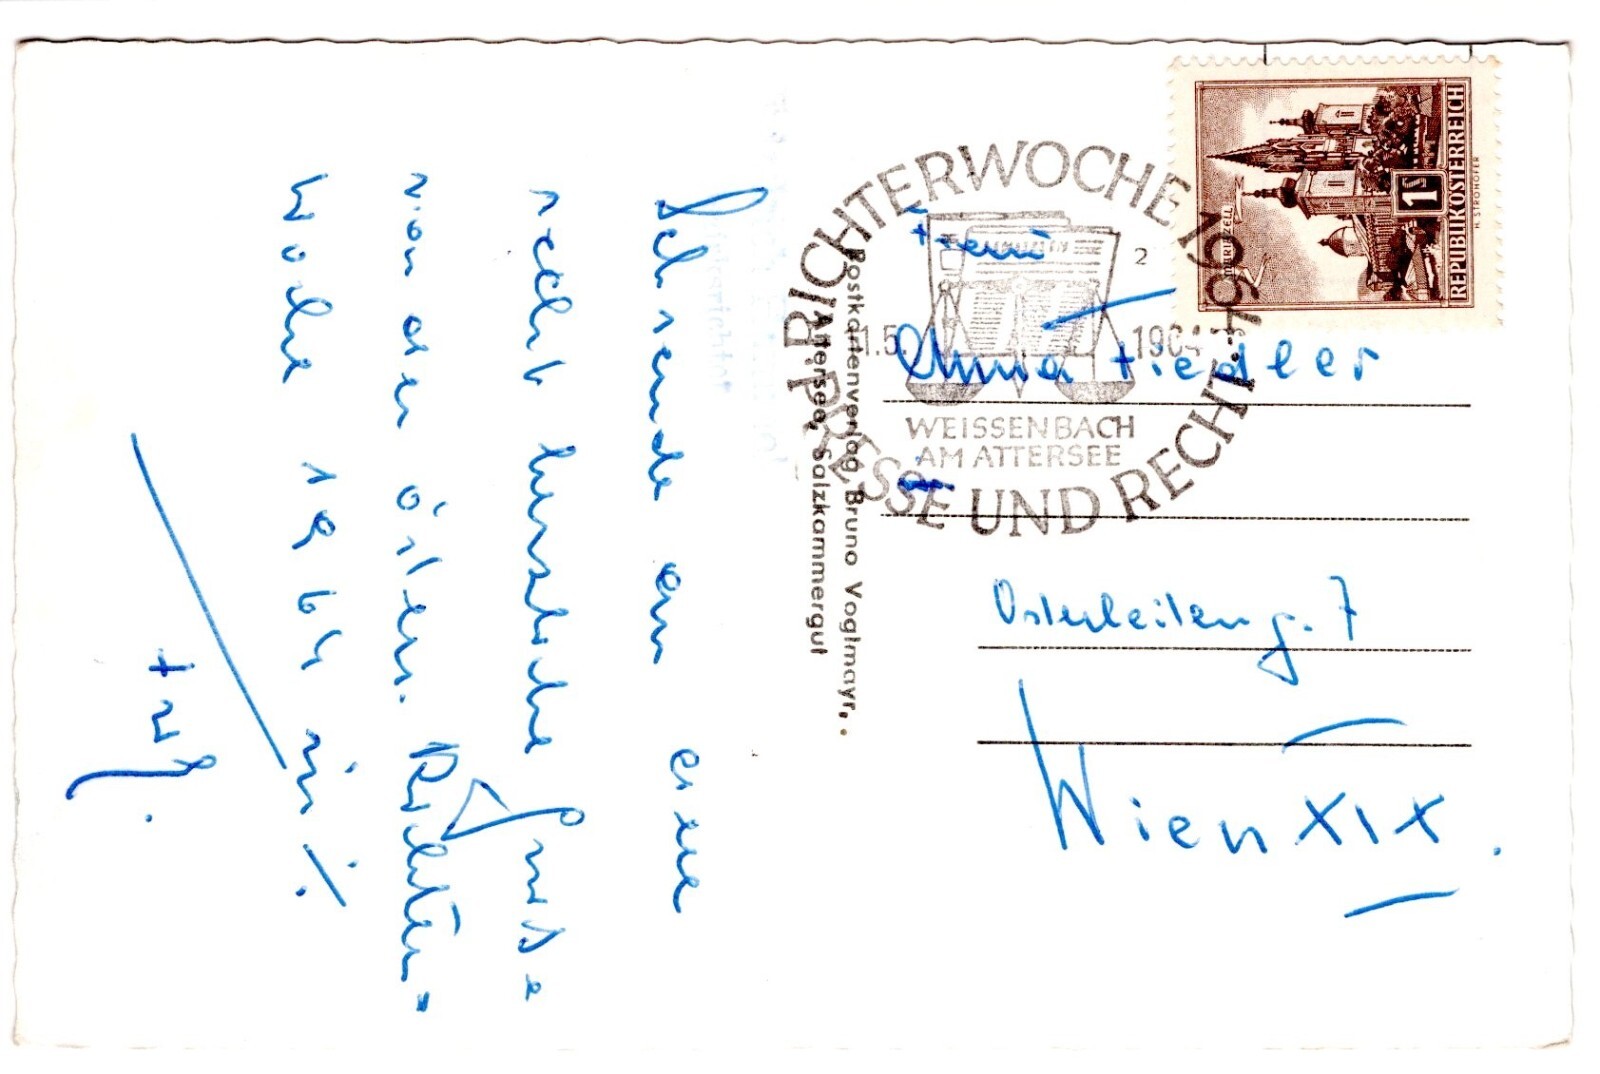 Ich sende an eine
recht herzliche Grüsse
von der österr. Richter=
Woche 1964 in
Postkartenverlag Bruno Voglmayr,
Attersee, Salzkammergut
RICHTERWOCHE 1964
PRESSE UND RECHT
WEISSENBACH
AM ATTERSEE
2
1.5.
1964
MARIAZELL
1 S
REPUBLIK ÖSTERREICH
H. STROHOFER
Frau
Anna Fiedler
Osterleiteng. 7
Wien XIX.